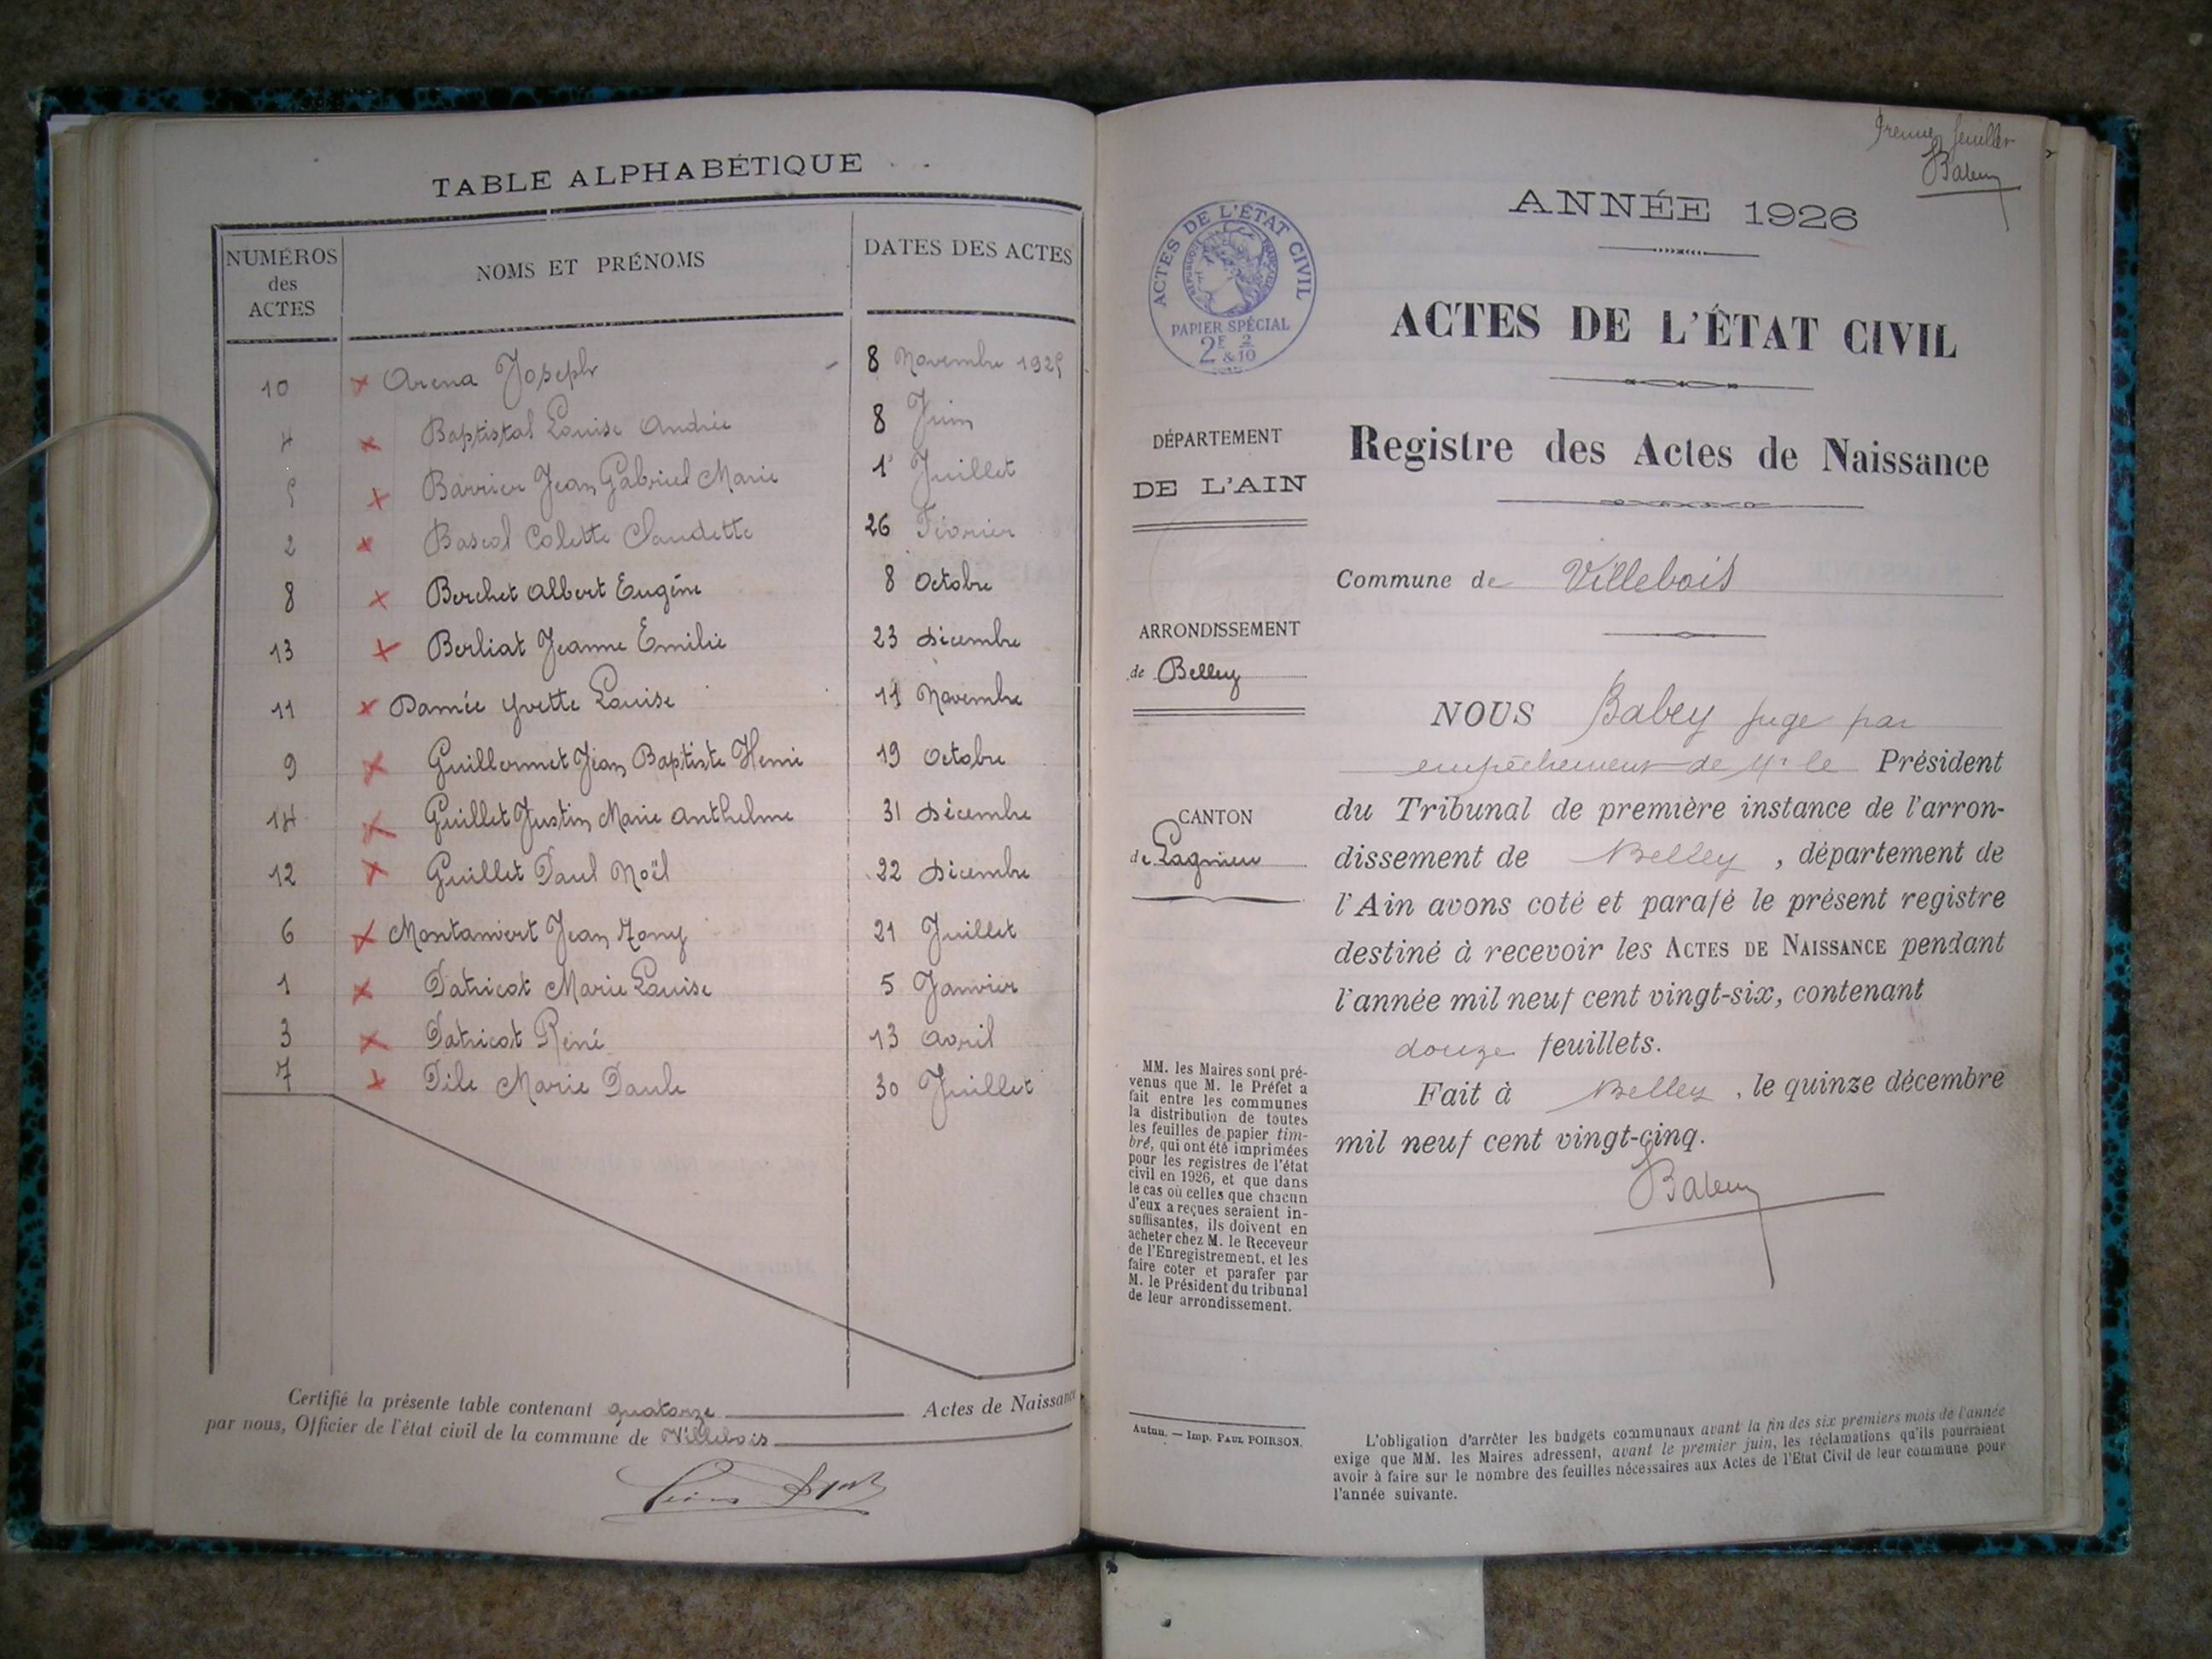 TABLE ALPHABÉTIQUE
NUMÉROS des ACTES
NOMS ET PRÉNOMS
DATES DES ACTES
10 Arena Joseph 8 Novembre 1925
4 Baptistal Louise Andrée 8 Juin
5 Barrier Jean Gabriel Marie 1er Juillet
2 Bascol Colette Claudette 26 Février
8 Berchet Albert Eugène 8 Octobre
13 Berliat Jeanne Emilie 23 Décembre
11 Damée Yvette Louise 11 Novembre
9 Guillermet Jean Baptiste Henri 19 Octobre
14 Guillet Justin Marie Anthelme 31 Décembre
12 Guillet Paul Noël 22 Décembre
6 Montanvert Jean Tony 21 Juillet
1 Patricot Marie Louise 5 Janvier
3 Patricot René 13 Avril
7 Pile Marie Paule 30 Juillet
Certifié la présente table contenant quatorze Actes de Naissance
par nous, Officier de l'état civil de la commune de Villebois
Premier feuillet
Babey
ANNÉE 1926
ACTES DE L'ÉTAT CIVIL
RÉPUBLIQUE FRANÇAISE
PAPIER SPÉCIAL
2F & 2/10
ACTES DE L'ÉTAT CIVIL
Registre des Actes de Naissance
DÉPARTEMENT
DE L'AIN
Commune de Villebois
ARRONDISSEMENT
de Belley
CANTON
de Lagnieu
NOUS Babey juge par
empêchement de Mr le Président
du Tribunal de première instance de l'arron-
dissement de Belley, département de
l'Ain avons coté et parafé le présent registre
destiné à recevoir les ACTES DE NAISSANCE pendant
l'année mil neuf cent vingt-six, contenant
douze feuillets.
Fait à Belley, le quinze décembre
mil neuf cent vingt-cinq.
Babey
MM. les Maires sont pré-
venus que M. le Préfet a
fait entre les communes
la distribution de toutes
les feuilles de papier tim-
bré, qui ont été imprimées
pour les registres de l'état
civil en 1926, et que dans
le cas où celles que chacun
d'eux a reçues seraient in-
suffisantes, ils doivent en
acheter chez M. le Receveur
de l'Enregistrement, et les
faire coter et parafer par
M. le Président du tribunal
de leur arrondissement.
Autun. — Imp. PAUL POIRSON.
L'obligation d'arrêter les budgets communaux avant la fin des six premiers mois de l'année
exige que MM. les Maires adressent, avant le premier juin, les réclamations qu'ils pourraient
avoir à faire sur le nombre des feuilles nécessaires aux Actes de l'Etat Civil de leur commune pour
l'année suivante.